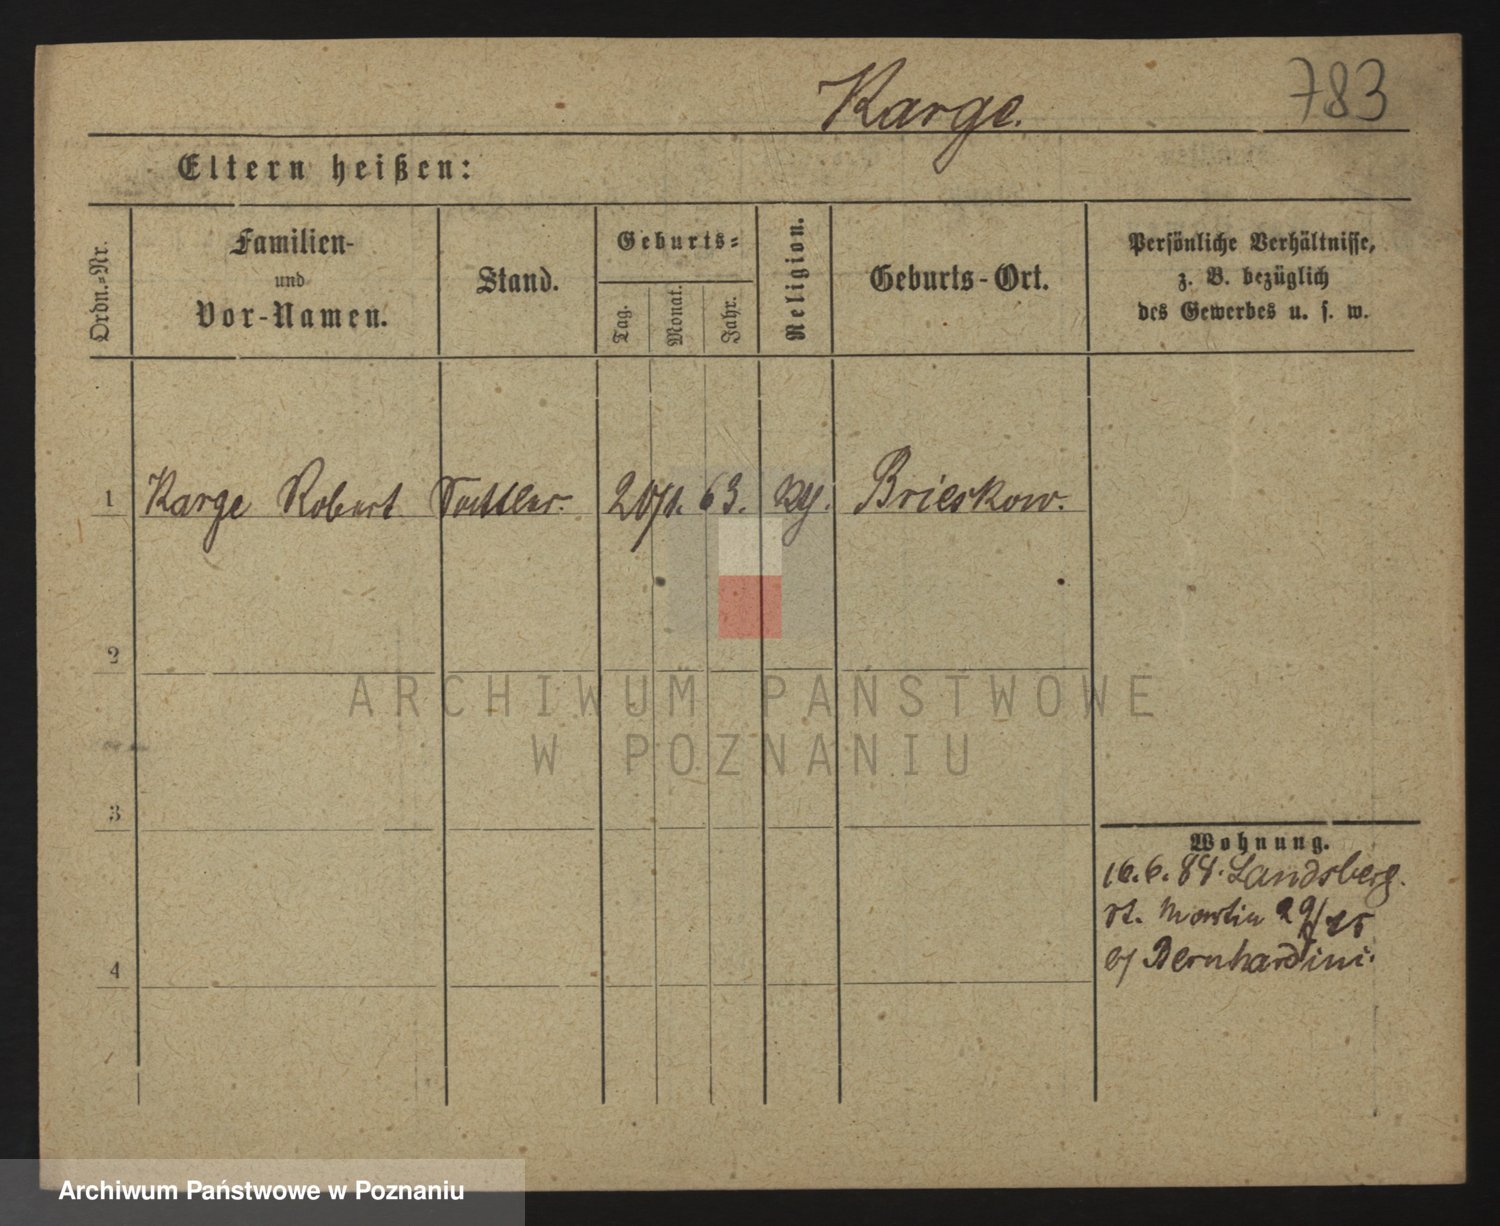 Karge.
783
Eltern heißen:
Ordn.-Nr.
Familien-
und
Vor-Namen.
Stand.
Geburts-
Tag.
Monat.
Jahr.
Religion.
Geburts-Ort.
Persönliche Verhältnisse,
z. B. bezüglich
des Gewerbes u. s. w.
1 Karge Robert Sattler. 63. Brieskow.
2
ARCHIWUM PAŃSTWOWE
W POZNANIU
3
Wohnung.
16. 6. 84. Landsberg.
St. Martin
Bernhardini.
4
Archiwum Państwowe w Poznaniu